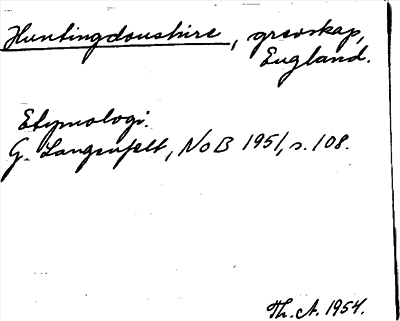 Huntingdonshire, grevskap,
England.
Etymologi.
G. Langenfelt, NoB 1951, s. 108.
Th. A. 1954.